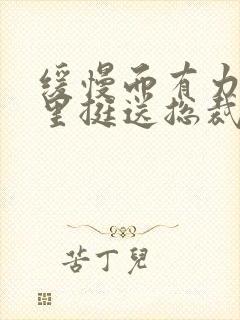 缓慢而有力
里挺送总裁
苦丁兒